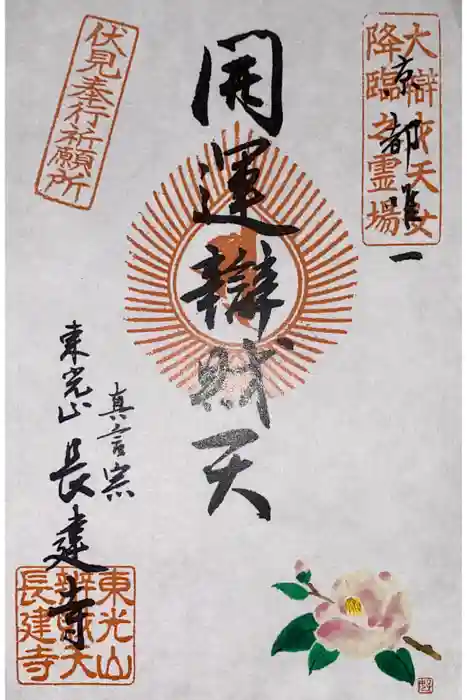 大辯才天女
降臨之霊場
京都唯一
開運辯財天
伏見奉行祈願所
真言宗
東光山 長建寺
東光山
辨財天
長建寺